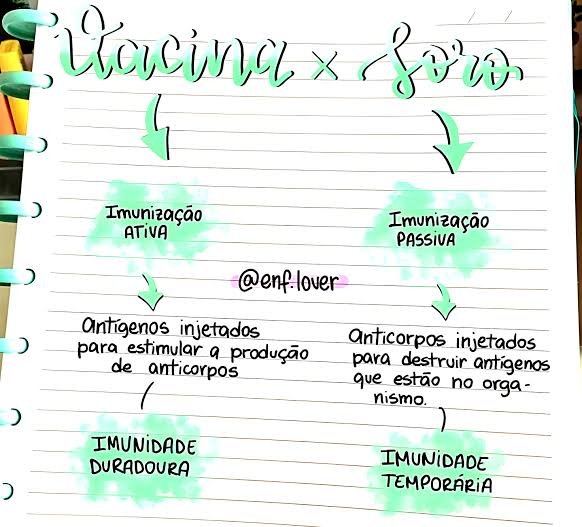 Vacina x Soro
Imunização
ATIVA
Imunização
PASSIVA
@enf.lover
Antígenos injetados
para estimular a produção
de anticorpos
Anticorpos injetados
para destruir antígenos
que estão no orga-
nismo.
IMUNIDADE
DURADOURA
IMUNIDADE
TEMPORÁRIA